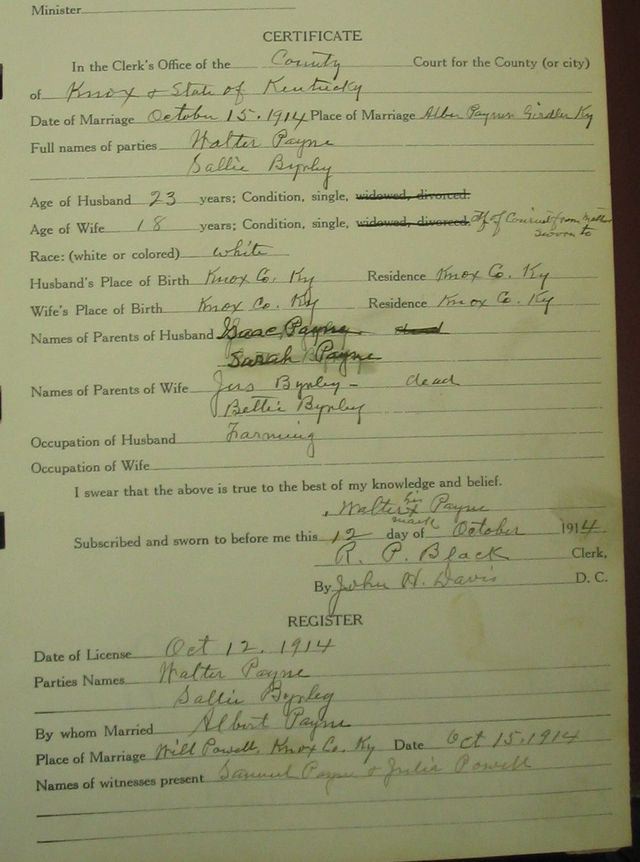 Minister
CERTIFICATE
In the Clerk's Office of the County Court for the County (or city)
of Knox & State of Kentucky
Date of Marriage October 15. 1914 Place of Marriage Girdler Ky
Full names of parties Walter Payne
Sallie Byrley
Age of Husband 23 years; Condition, single, widowed, divorced.
Age of Wife 18 years; Condition, single, widowed, divorced. of from Mother
sworn to
Race: (white or colored) white
Husband's Place of Birth Knox Co. Ky Residence Knox Co. Ky
Wife's Place of Birth Knox Co. Ky Residence Knox Co. Ky
Names of Parents of Husband Isaac Payne dead
Sarah Payne
Names of Parents of Wife Byrley - dead
Bettie Byrley
Occupation of Husband Farming
Occupation of Wife
I swear that the above is true to the best of my knowledge and belief.
Walter his x mark Payne
Subscribed and sworn to before me this 12 day of October 1914
R. P. Black Clerk,
By John H. Davis D. C.
REGISTER
Date of License Oct 12. 1914
Parties Names Walter Payne
Sallie Byrley
By whom Married Albert Payne
Place of Marriage Will Powell, Knox Co. Ky Date Oct 15. 1914
Names of witnesses present Samuel Payne & Julia Powell